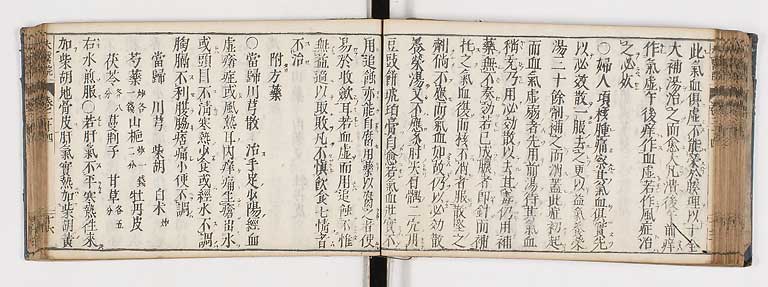 此氣血俱虛不能榮於腠理以十全
大補湯治之而愈大凡潰後午前痒
作氣虛午後痒作血虛若作風症治
之必死
○婦人項核腫痛察其氣血俱實先
以必效散一服去之更以益氣養榮
湯三十餘劑補之而消蓋此症初起
而血氣虛弱者先用前湯待其氣血
稍充乃用必効散以去其毒仍用補
藥無不奏効若已成膿者即針而補
托之氣血復而核不消者服散堅之
劑倘不應而氣血如故仍以必効散
養榮湯又不應灸肘尖二分用
豆豉餅琥珀膏自愈若氣血不
用追蝕亦能自腐用藥以腐之者使
易於收斂耳若血虛而用追蝕不惟
無益適以取敗凡不慎飲食七情者
不治
附方藥
○當歸川芎散 治手足少陽經血
虛瘡症或風熱耳內痒痛生瘡出水
或頭目不清寒熱少食或經水不調
胸膈不利腹脇痞痛小便不調
當歸 川芎 柴胡 白朮炒
芍藥炒各一錢 山梔炒一錢二分 牡丹皮
茯苓各八分 蔓荊子 甘草各五分
右水煎服○若肝氣不平寒熱往來
加柴胡地骨皮肝氣實熱加柴胡黃